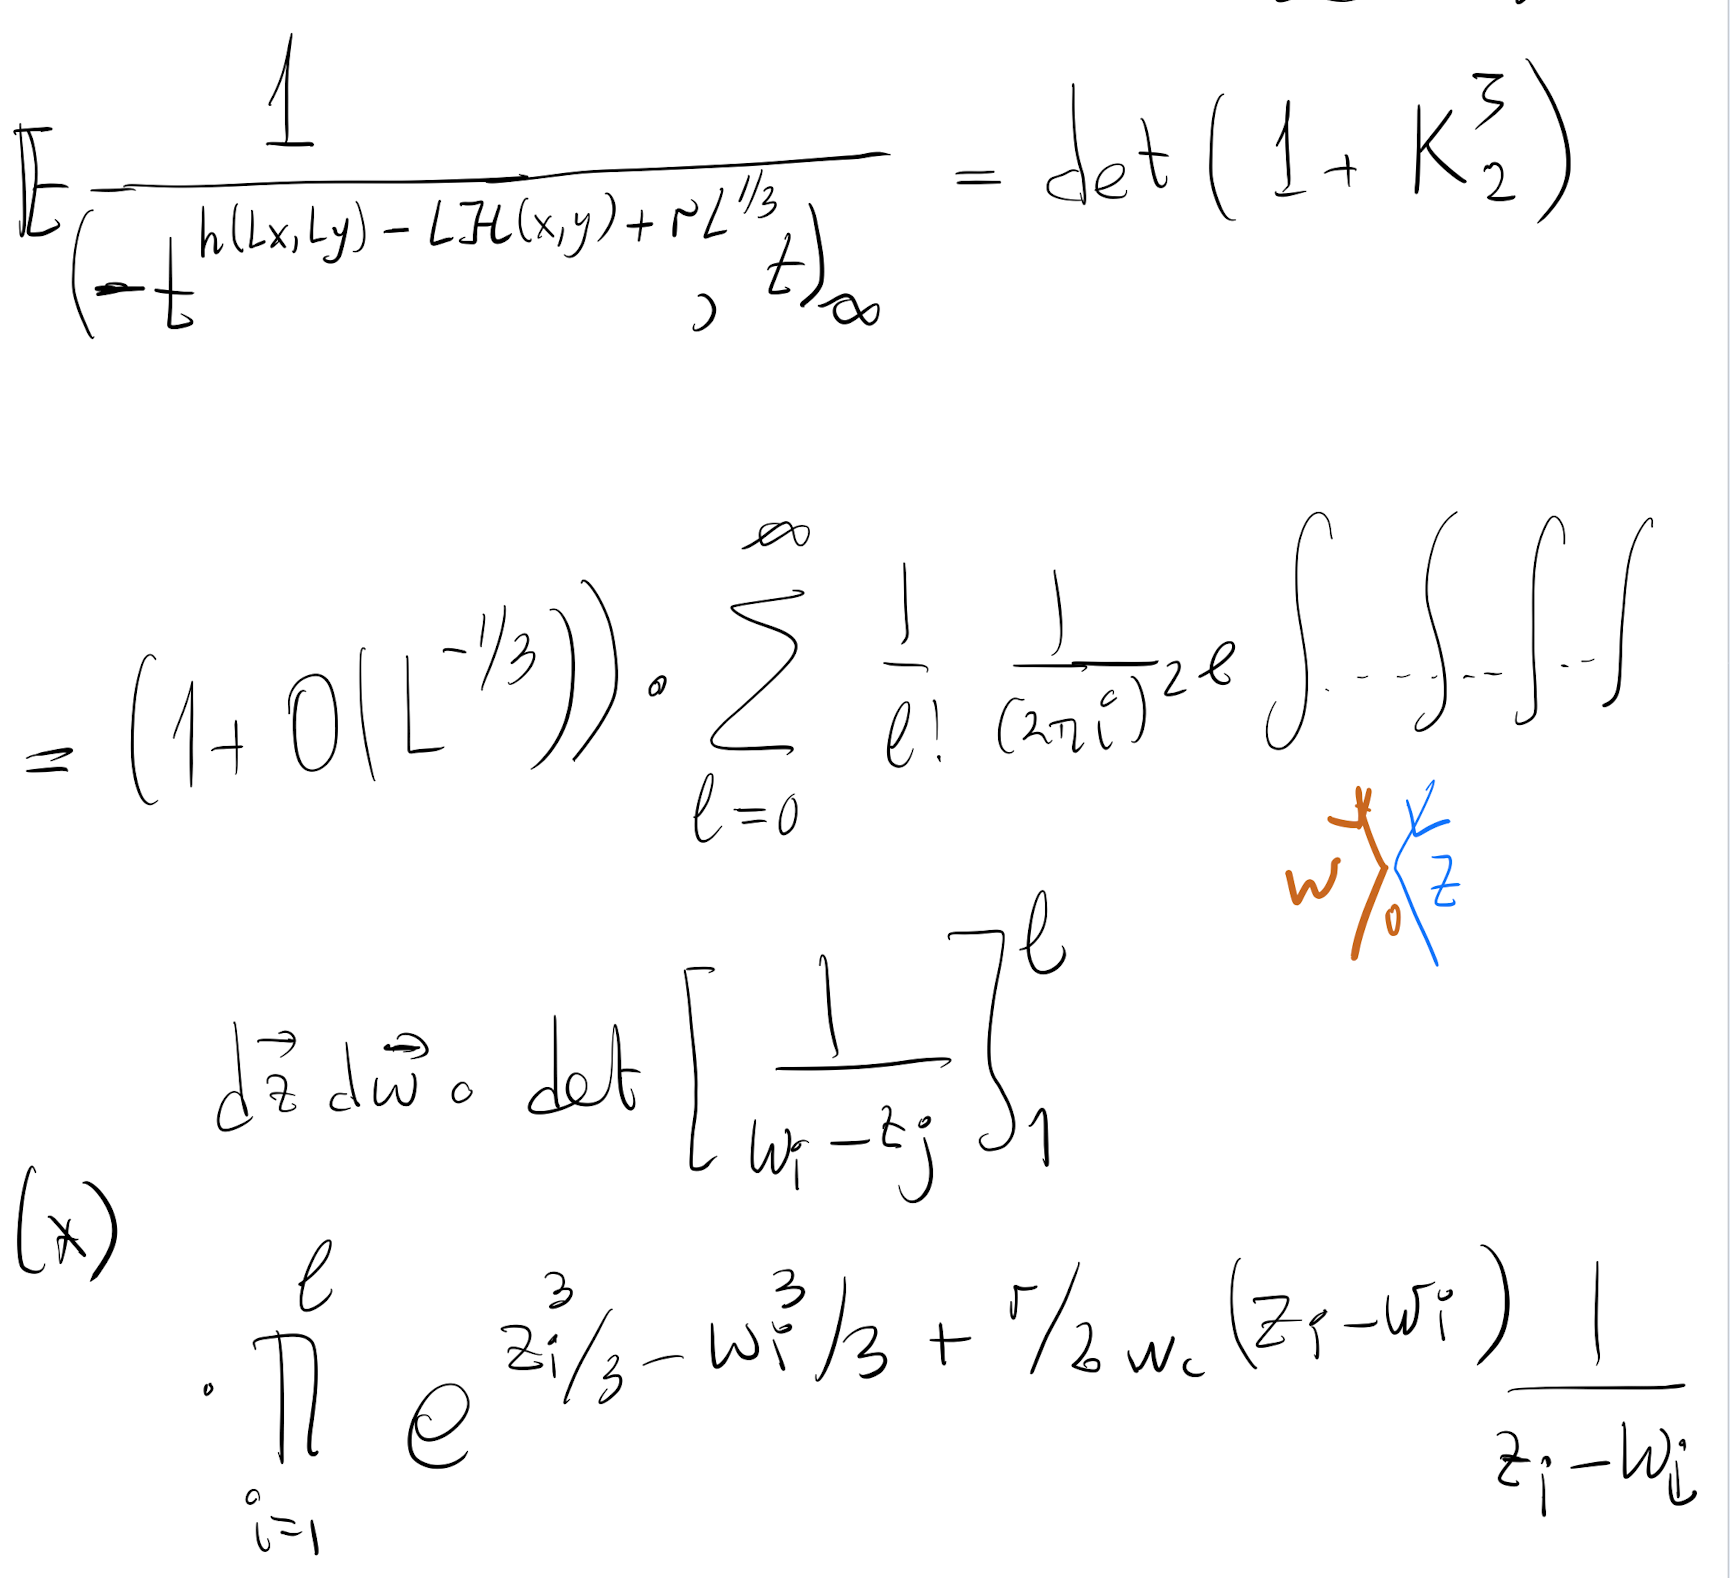 𝔼 1 / (-t^{h(Lx,Ly) - Lℋ(x,y) + rL^{1/3}}, t)_∞ = det(1 + K_2^3)
= (1 + O(L^{-1/3})) · ∑_{ℓ=0}^{∞} 1/ℓ! 1/(2πi)^{2ℓ} ∫....∫...∫...∫
w 0 z
d\vec{z} d\vec{w} · det[1/(w_i - z_j)]_1^ℓ
(*)
· ∏_{i=1}^{ℓ} e^{z_i^3/3 - w_i^3/3 + r/3 w_c (z_i - w_i)} 1/(z_i - w_i)